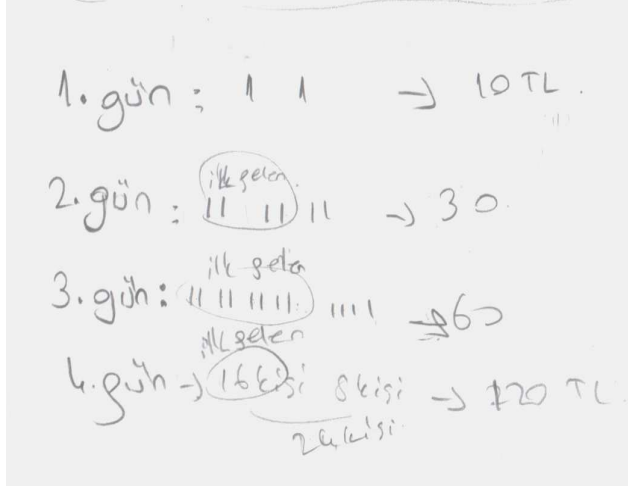 1. gün : 1 1 → 10 TL.
ilk gelen
2. gün : 11 11 11 → 30
ilk gelen
3. gün : 11 11 11 11 1111 → 60
ilk gelen
4. gün → 16 kişi 8 kişi → 120 TL
24 kişi